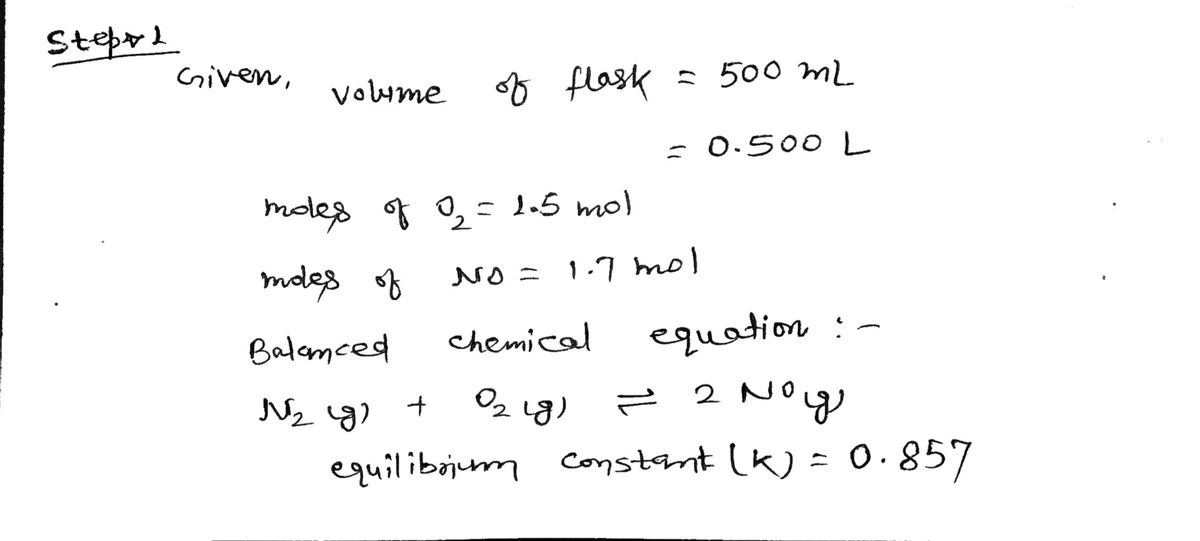 Step 1
Given, volume of flask = 500 mL
= 0.500 L
moles of O₂ = 1.5 mol
moles of NO = 1.7 mol
Balanced chemical equation :-
N₂ (g) + O₂ (g) ⇌ 2 NO (g)
equilibrium constant (K) = 0.857